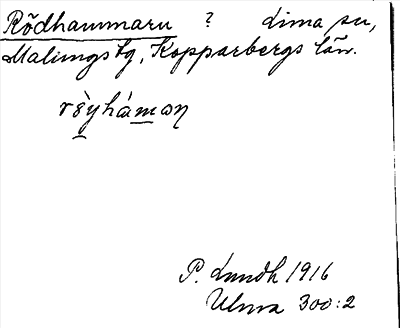 Rödhammarn ? Lima sn,
Malungs tg, Kopparbergs län.
P. Lundh 1916
Ulma 300:2